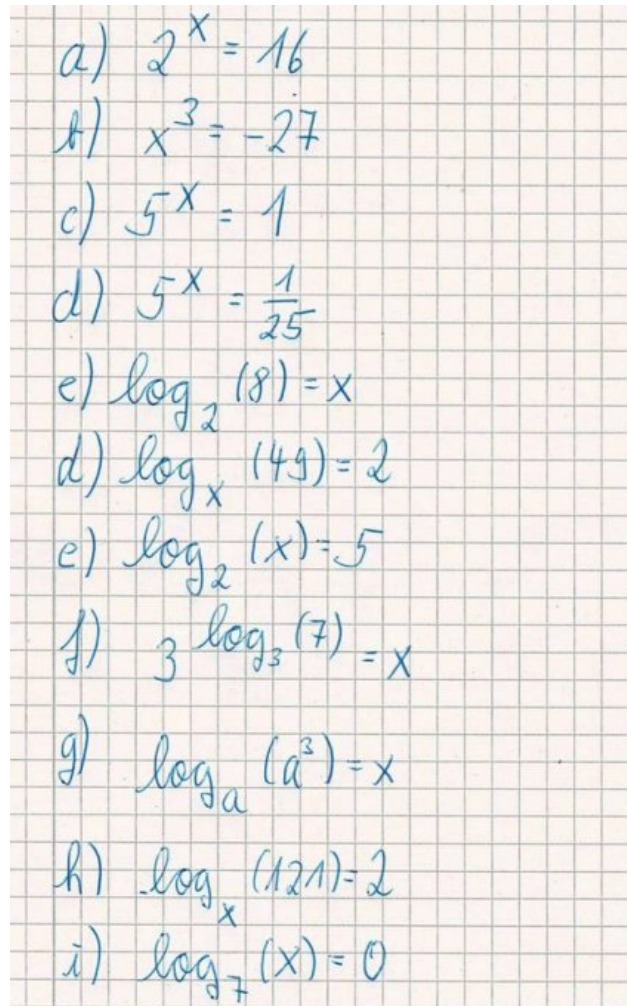 a) 2^x = 16
b) x^3 = -27
c) 5^x = 1
d) 5^x = 1/25
e) log_2 (8) = x
d) log_x (49) = 2
e) log_2 (x) = 5
f) 3^log_3 (7) = x
g) log_a (a^3) = x
h) log_x (121) = 2
i) log_7 (x) = 0